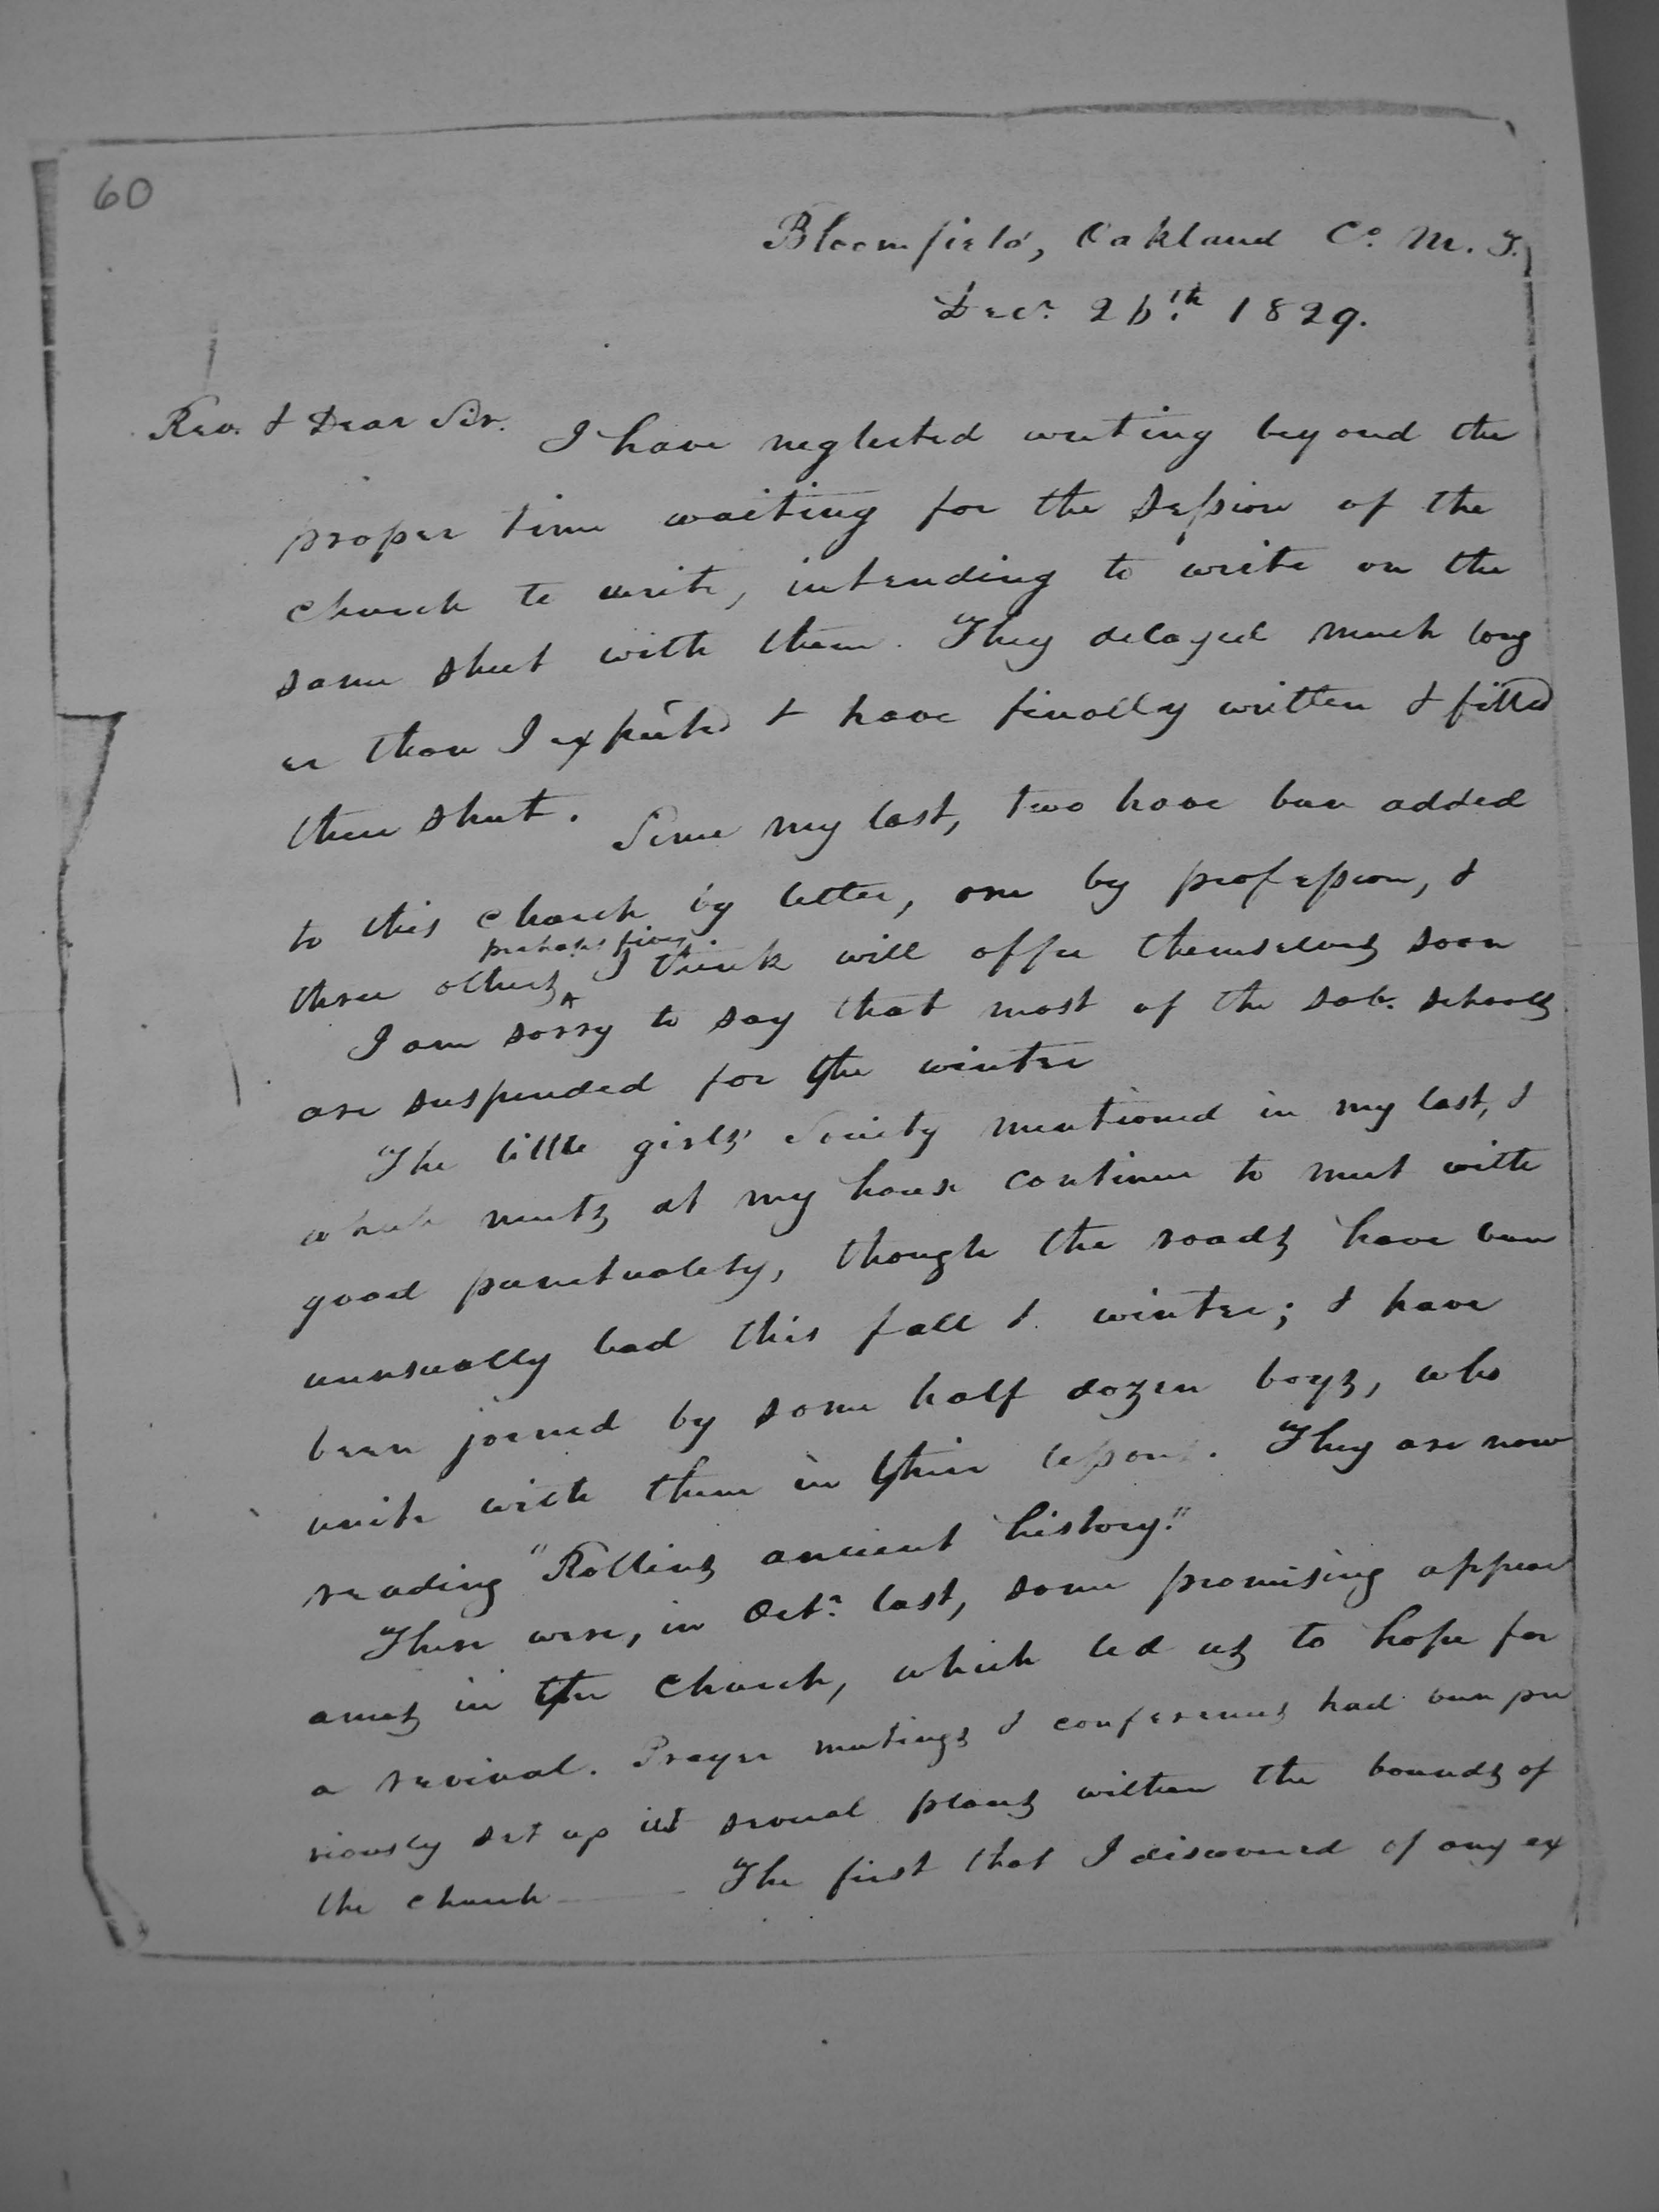 60
Bloomfield, Oakland Co. M. T.
Decr. 26th 1829.
Rev. & Dear Sir. I have neglected writing beyond the
proper time waiting for the Session of the
church to write, intending to write on the
same sheet with them. They delayed much long
er than I expected & have finally written & filled
their sheet. Since my last, two have been added
to this church by letter, one by profession, &
perhaps five
three others I think will offer themselves soon
I am sorry to say that most of the sab. schools
are suspended for the winter
The little girls' Society mentioned in my last, &
which meets at my house continue to meet with
good punctuality, though the roads have been
unusually bad this fall & winter; & have
been joined by some half dozen boys, who
unite with them in their lessons. They are now
reading "Rollins ancient history."
There were, in Octr. last, some promising appear
ances in the church, which led us to hope for
a revival. Prayer meetings & conferences had been pre
viously set up in several places within the bounds of
the church — The first that I discovered of any ex